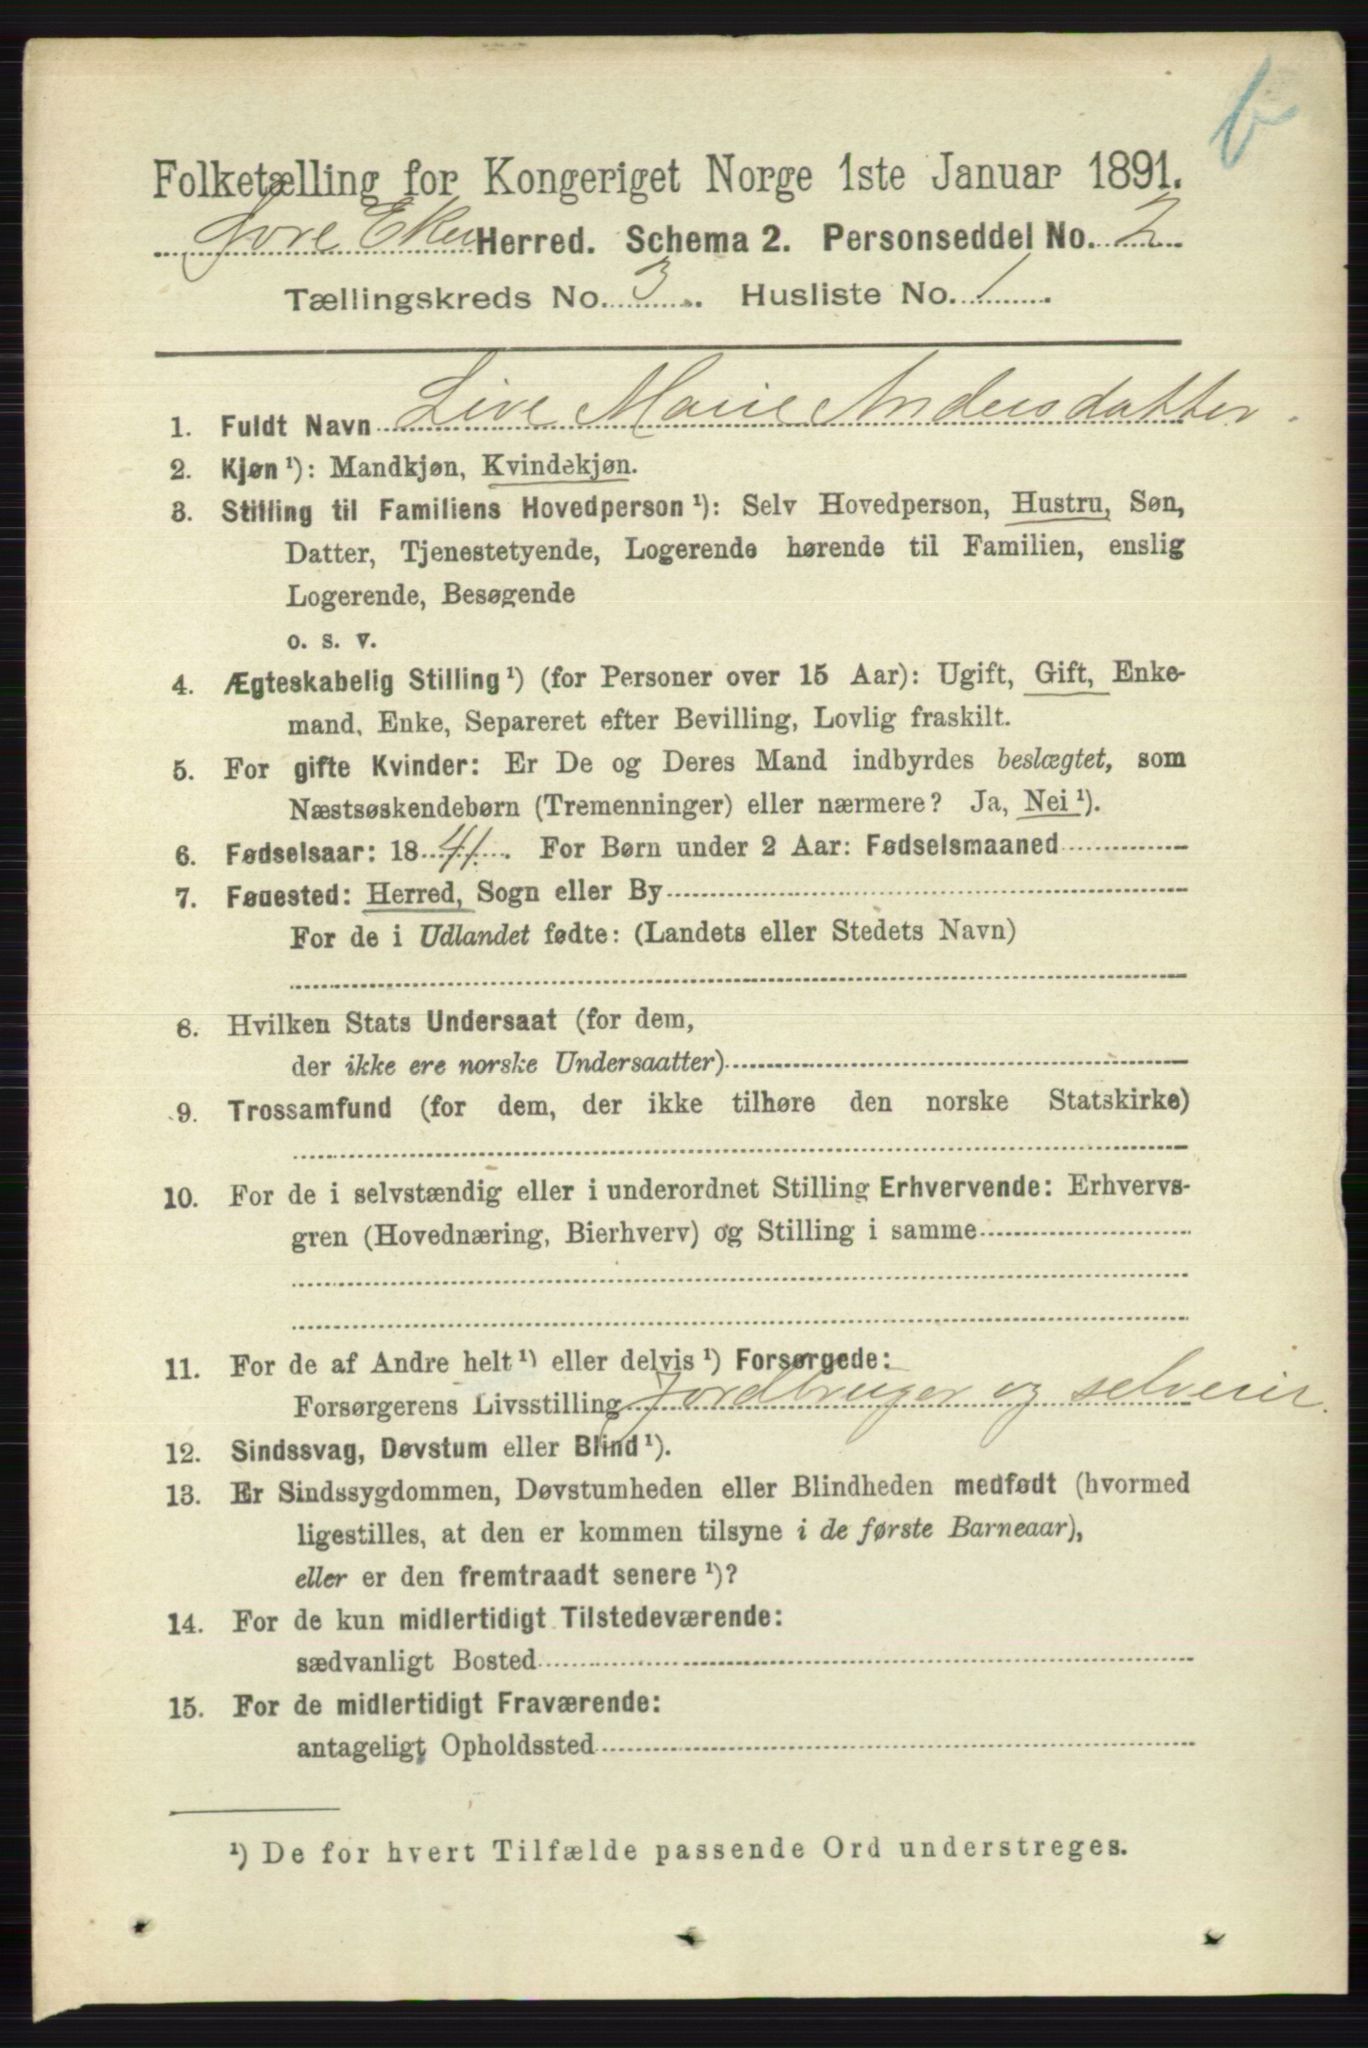 b
Folketælling for Kongeriget Norge 1ste Januar 1891.
Eker Herred. Schema 2. Personseddel No. 2
Tællingskreds No. 3. Husliste No. 1.
1. Fuldt Navn Live Marie Andersdatter.
2. Kjøn ¹): Mandkjøn, Kvindekjøn.
3. Stilling til Familiens Hovedperson ¹): Selv Hovedperson, Hustru, Søn,
Datter, Tjenestetyende, Logerende hørende til Familien, enslig
Logerende, Besøgende
o. s. v.
4. Ægteskabelig Stilling ¹) (for Personer over 15 Aar): Ugift, Gift, Enke-
mand, Enke, Separeret efter Bevilling, Lovlig fraskilt.
5. For gifte Kvinder: Er De og Deres Mand indbyrdes beslægtet, som
Næstsøskendebørn (Tremenninger) eller nærmere? Ja, Nei ¹).
6. Fødselsaar: 1841. For Børn under 2 Aar: Fødselsmaaned
7. Fødested: Herred, Sogn eller By
For de i Udlandet fødte: (Landets eller Stedets Navn)
8. Hvilken Stats Undersaat (for dem,
der ikke ere norske Undersaatter)
9. Trossamfund (for dem, der ikke tilhøre den norske Statskirke)
10. For de i selvstændig eller i underordnet Stilling Erhvervende: Erhvervs-
gren (Hovednæring, Bierhverv) og Stilling i samme
11. For de af Andre helt ¹) eller delvis ¹) Forsørgede:
Forsørgerens Livsstilling Jordbruger og selveier.
12. Sindssvag, Døvstum eller Blind ¹).
13. Er Sindssygdommen, Døvstumheden eller Blindheden medfødt (hvormed
ligestilles, at den er kommen tilsyne i de første Barneaar),
eller er den fremtraadt senere ¹)?
14. For de kun midlertidigt Tilstedeværende:
sædvanligt Bosted
15. For de midlertidigt Fraværende:
antageligt Opholdssted
¹) De for hvert Tilfælde passende Ord understreges.